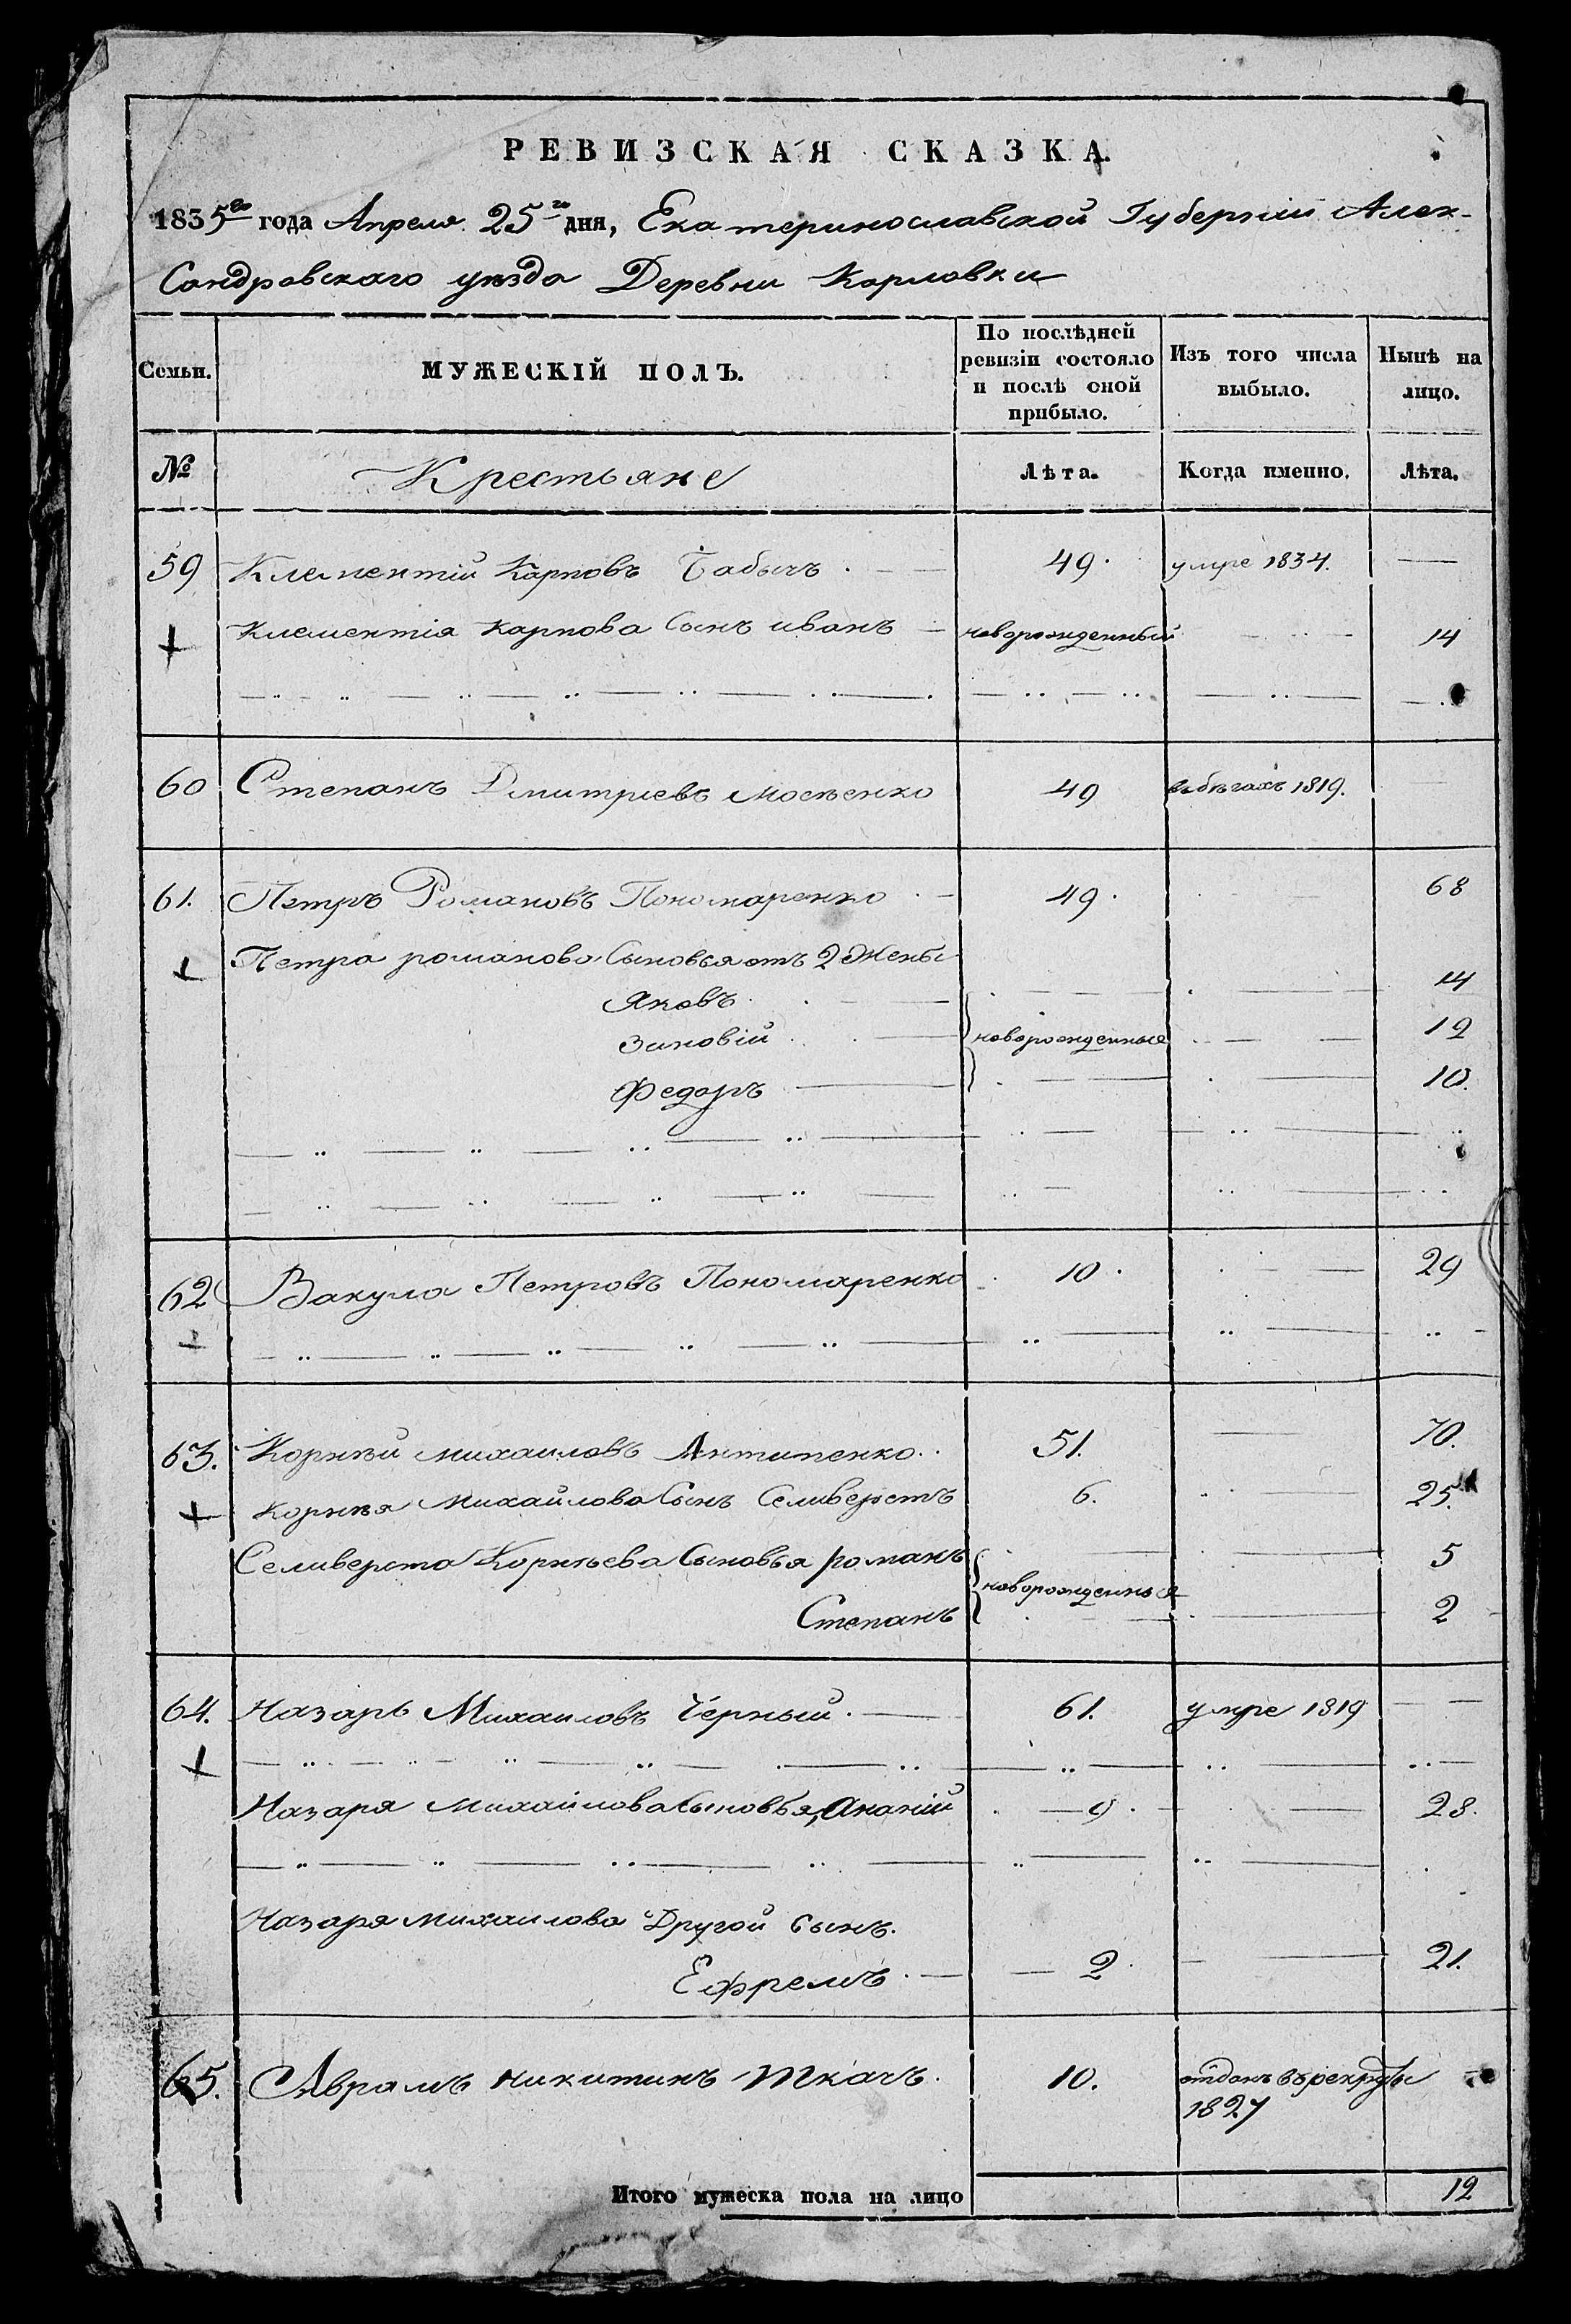 РЕВИЗСКАЯ СКАЗКА.
1835го года Апреля 25го дня, Екатеринославской Губернии Алек-
Сандровскаго уезда Деревни Карловки
Семьи. МУЖЕСКІЙ ПОЛЪ. По послѣдней ревизіи состояло и послѣ оной прибыло. Изъ того числа выбыло. Нынѣ на лицо.
№ Крестьяне Лѣта. Когда именно. Лѣта.
59 Клементій Карповъ Бабычъ 49. умре 1834. —
Клементія Карпова Сынъ иванъ новорожденный 14
60 Степанъ Дмитриевъ Мосѣенко 49 въ бѣгахъ 1819. —
61. Петръ Романовъ Пономаренко 49. 68
Петра романова Сыновья отъ 2 Жены
Яковъ 14
Зиновій новорожденные 12
Федоръ 10.
62 Вакула Петровъ Пономаренко 10. 29
63. Корнѣй михаиловъ Антипенко 51. 70.
Корнѣя Михайлова Сынъ Селиверстъ 6. 25.
Селиверста Корнѣева Сыновья романъ новорожденныя 5
Степанъ 2
64. Назаръ Михаиловъ Черный 61. умре 1819 —
Назаря михайлова Сыновья, Ананій 9. 28.
Назаря михаилова Другой Сынъ.
Ефремъ 2 21.
65. Аврамъ никитинъ Ткачъ. 10. отданъ въ рекруты
1827
Итого мужеска пола на лицо 12